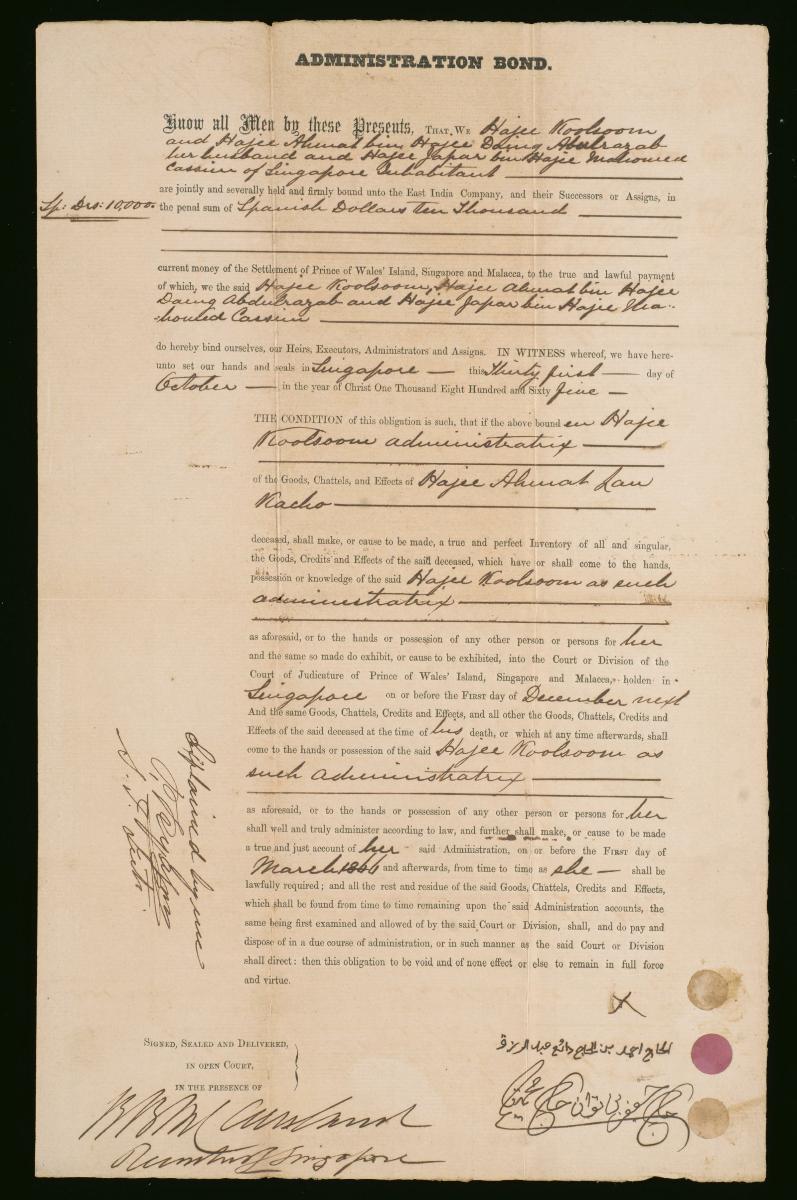 ADMINISTRATION BOND.
Know all Men by these Presents, THAT WE Hajee Koolsoom
and Hajee Ahmat bin Hajee Daing Abdulrazab
her husband and Hajee Japar bin Hajee Mahomed
Cassim of Singapore Inhabitant
are jointly and severally held and firmly bound unto the East India Company, and their Successors or Assigns, in
Sp: Drs: 10,000. the penal sum of Spanish Dollars ten Thousand
current money of the Settlement of Prince of Wales' Island, Singapore and Malacca, to the true and lawful payment
of which, we the said Hajee Koolsoom, Hajee Ahmat bin Hajee
Daing Abdulrazab and Hajee Japar bin Hajee Ma-
-homed Cassim
do hereby bind ourselves, our Heirs, Executors, Administrators and Assigns. IN WITNESS whereof, we have here-
unto set our hands and seals in Singapore this Thirty first day of
October in the year of Christ One Thousand Eight Hundred and Sixty five
THE CONDITION of this obligation is such, that if the above bounden Hajee
Koolsoom administratrix
of the Goods, Chattels, and Effects of Hajee Ahmat Lau
Kacho
deceased, shall make, or cause to be made, a true and perfect Inventory of all and singular,
the Goods, Credits and Effects of the said deceased, which have or shall come to the hands,
possession or knowledge of the said Hajee Koolsoom as such
administratrix
as aforesaid, or to the hands or possession of any other person or persons for her
and the same so made do exhibit, or cause to be exhibited, into the Court or Division of the
Court of Judicature of Prince of Wales' Island, Singapore and Malacca, holden in
Singapore on or before the FIRST day of December next
And the same Goods, Chattels, Credits and Effects, and all other the Goods, Chattels, Credits and
Effects of the said deceased at the time of his death, or which at any time afterwards, shall
come to the hands or possession of the said Hajee Koolsoom as
such administratrix
as aforesaid, or to the hands or possession of any other person or persons for her
shall well and truly administer according to law, and further shall make, or cause to be made
a true and just account of her said Administration, on or before the FIRST day of
March 1866 and afterwards, from time to time as she shall be
lawfully required; and all the rest and residue of the said Goods, Chattels, Credits and Effects,
which shall be found from time to time remaining upon the said Administration accounts, the
same being first examined and allowed of by the said Court or Division, shall, and do pay and
dispose of in a due course of administration, or in such manner as the said Court or Division
shall direct: then this obligation to be void and of none effect or else to remain in full force
and virtue.
Explained by me
X
الحاج احمد بن الحاج دائع عبد الرزاق
SIGNED, SEALED AND DELIVERED,
IN OPEN COURT,
IN THE PRESENCE OF